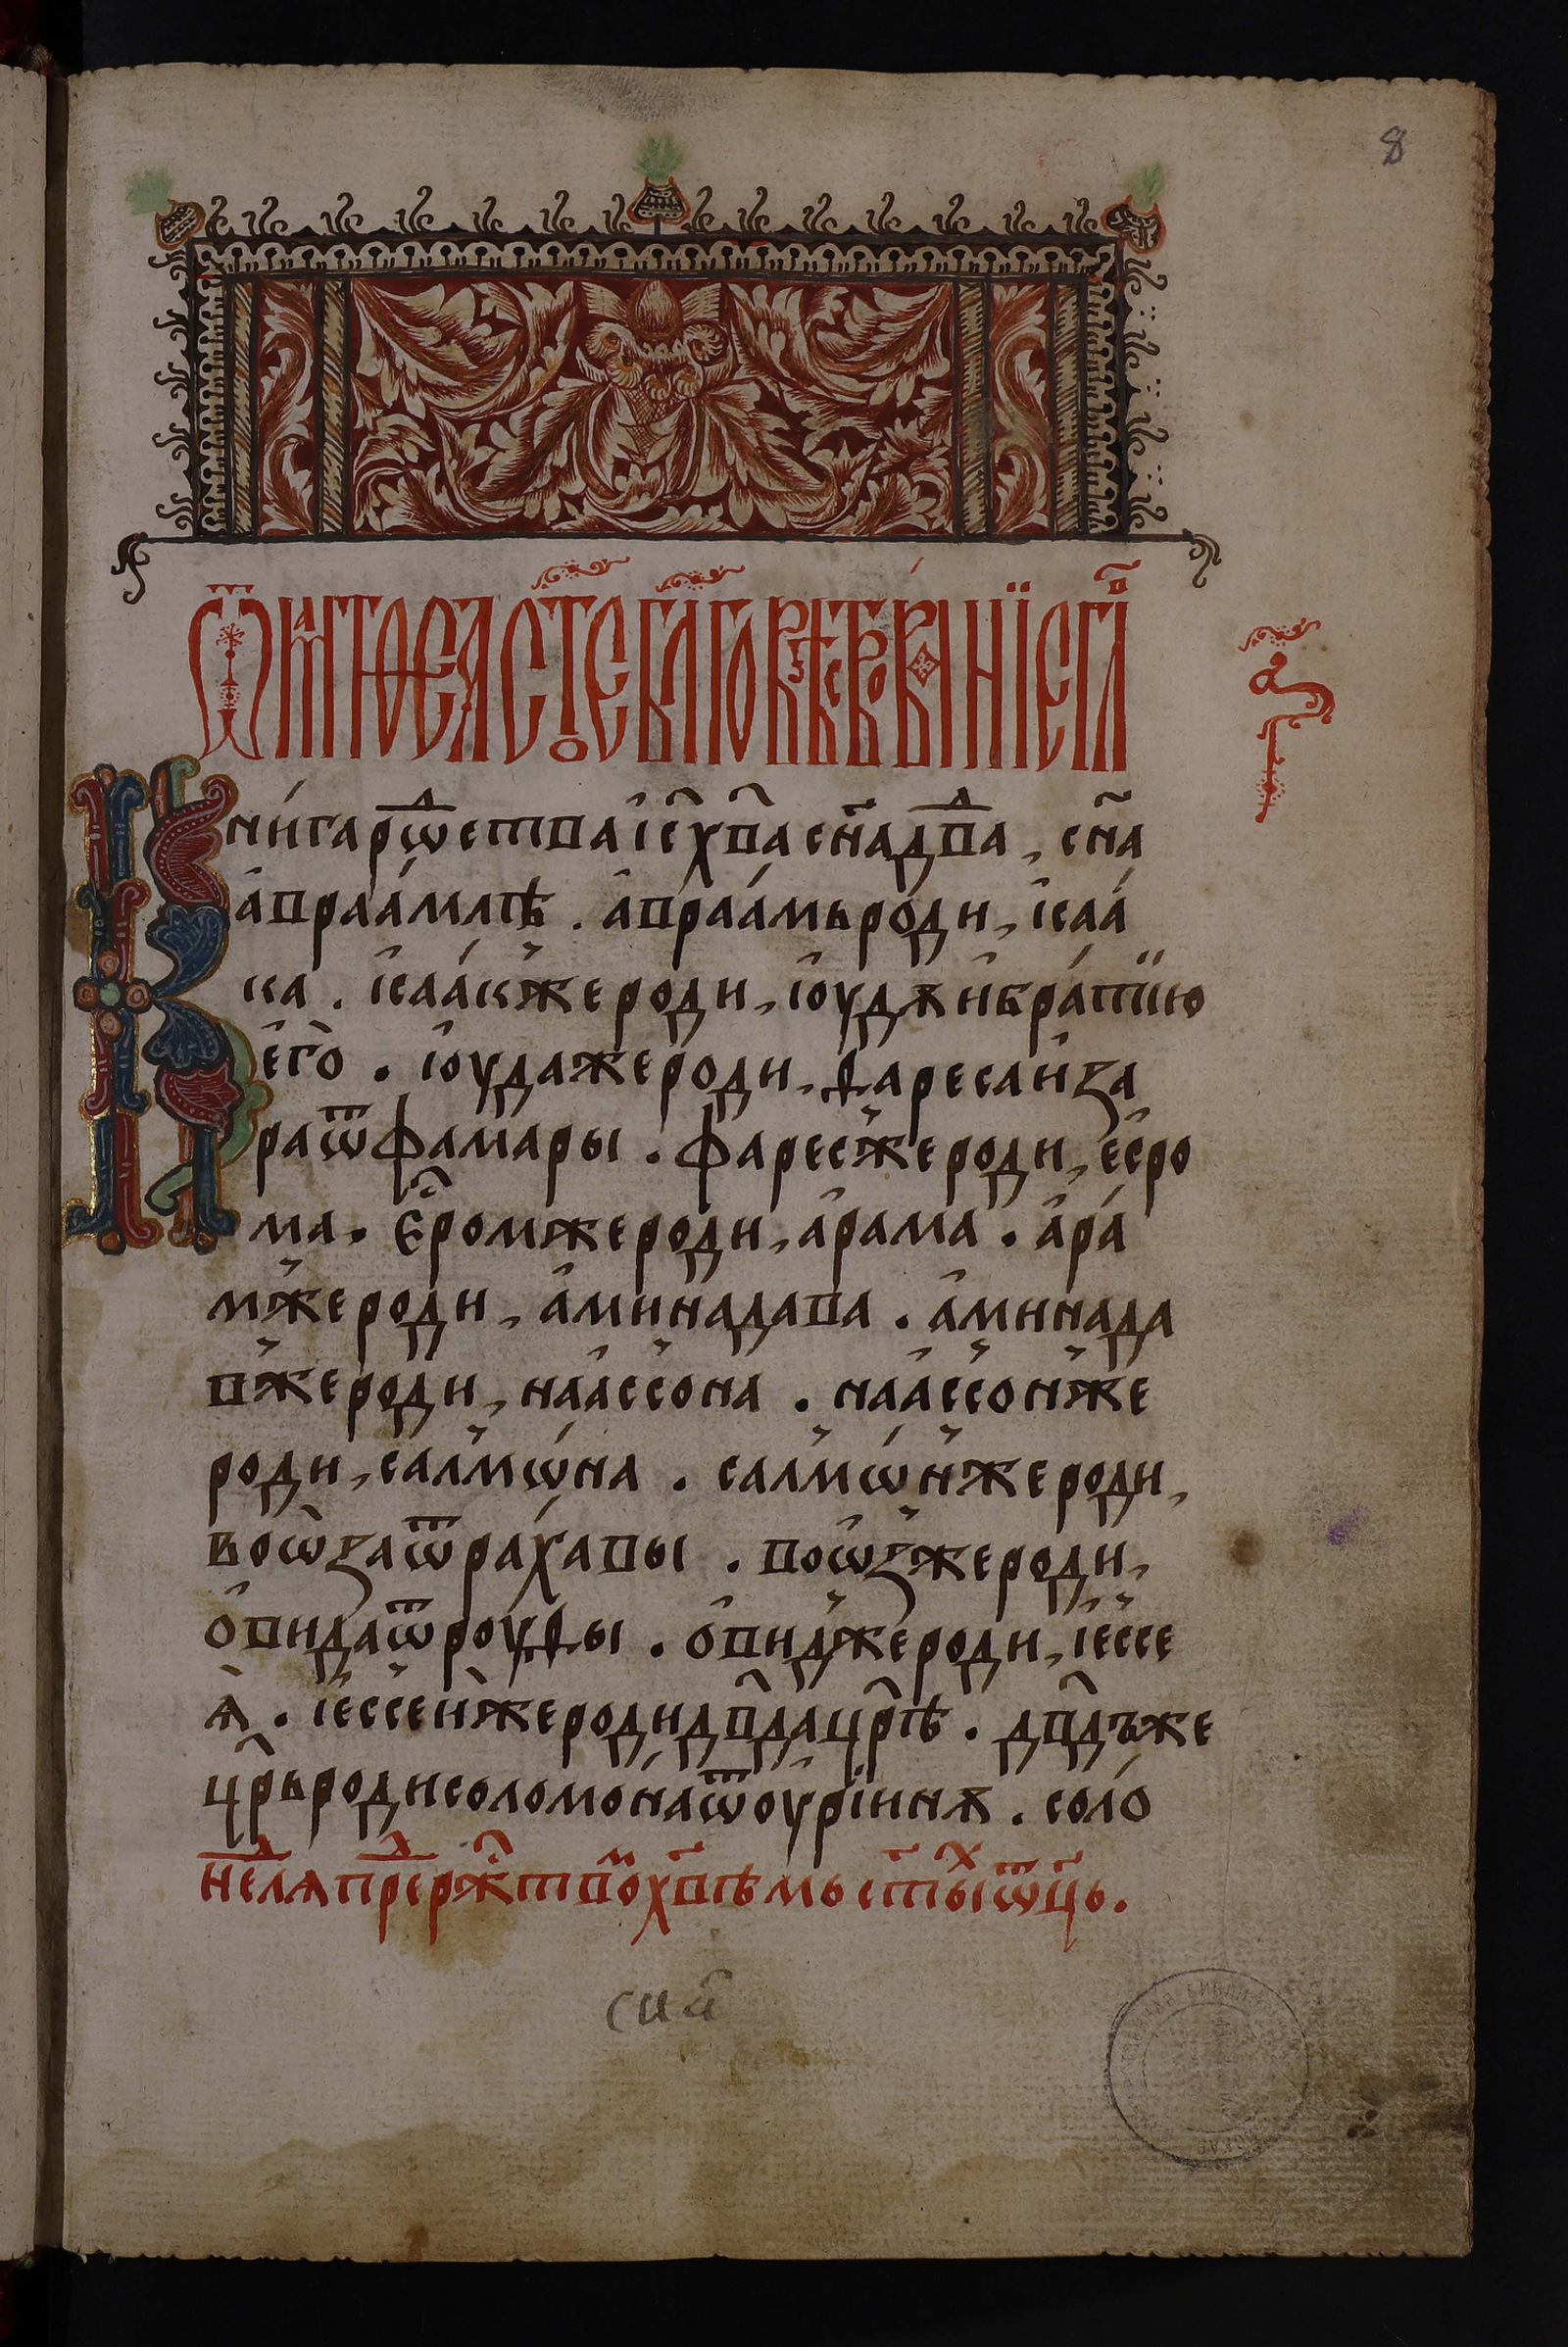 8
Ѿ матѳеꙗ ст҃ое бл҃говѣствованїе гл҃в а҃
Кни́га рѡⷣства і҆с҃ х҃ва сн҃а дв҃ⷣа, сн҃а
а҆враа́млѧ. а҆враа́мь роди, і҆саа́
ка. і҆саа́к же роди, і҆ѹдꙋ и҆ бра́тїю
є҆го̀. і҆ѹда же роди, ѳареса и҆ за
ра ѿ фамары. фарес же роди, є҆сро
ма. єⷭ҇ром же роди, а҆рама. а҆ра́
м же роди, а҆минадава. а҆минада
в же роди, наассона. наассон же
роди, салмѡ́на. салмѡ́н же роди,
воѡ̀за ѿ ра́хавы. воѡз же роди,
ѻ҆вида ѿ роуѳы. ѻ҆вид же роди, і҆ессе
ѧ̀. і҆ессей же роди дв҃да цр҃ѧ. дв҃дъ же
цр҃ь роди соломо́на ѿ оурі́инꙋ. соло́
неⷣлѧ преⷣ ржⷭ҇твоⷨ хв҃ѣмь ст҃ыⷯ ѿц҃ь.
сиа